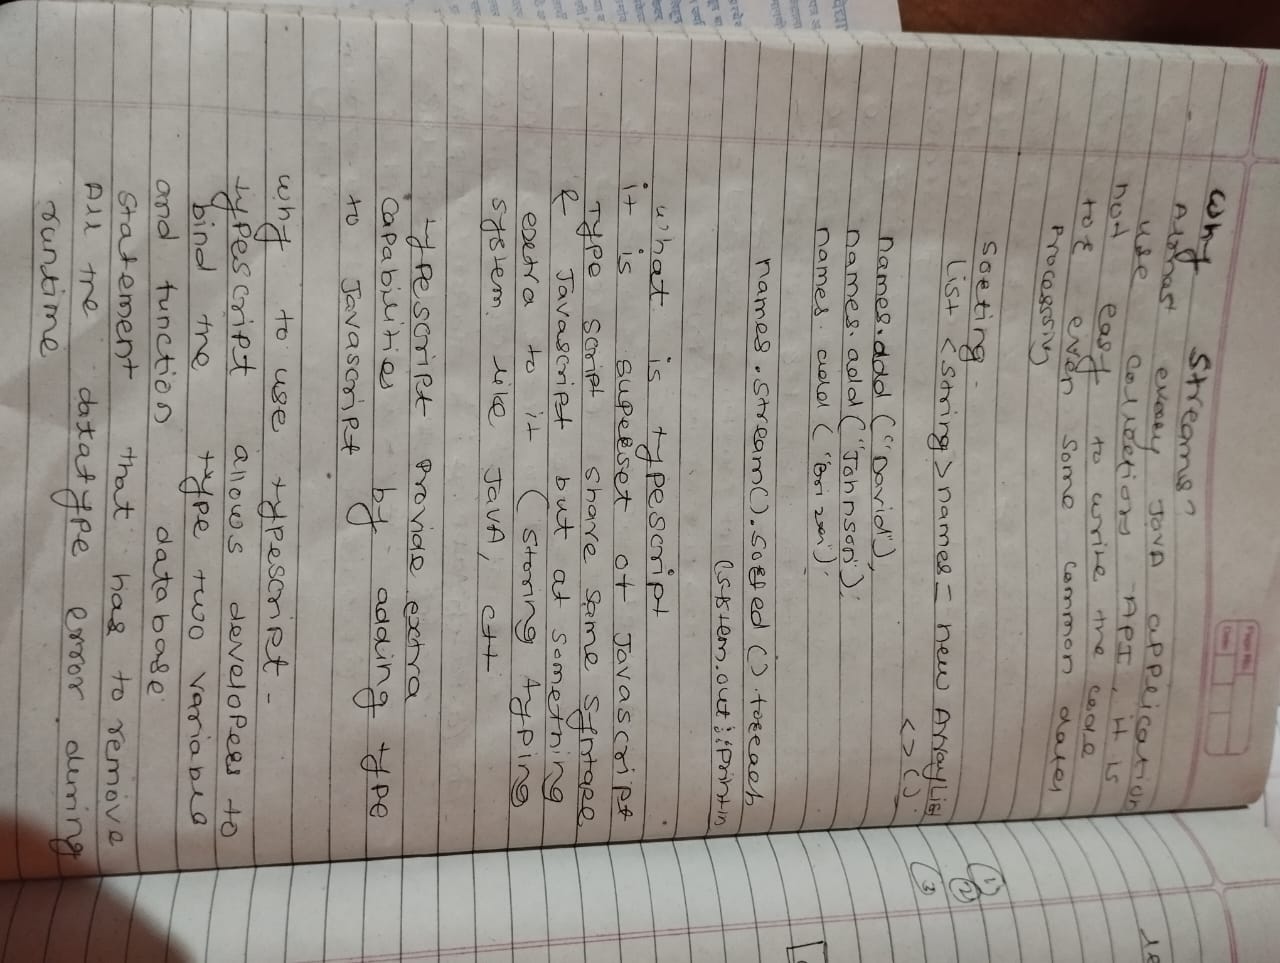 Why Streams?
Almost every Java application
use collections API, it is
not easy to write the code
for even some common data
processing
sorting -
List <String> names = new ArrayList
<>();
names.add ("David");
names.add ("Johnson");
names.add ("Brian");
names.stream().sorted().foreach
(System.out::println
what is typescript
it is superset of Javascript
Type script share same syntax
& Javascript but at something
extra to it (storing typing
system like JavA, c++
typescript provide extra
capabilities by adding type
to Javascript
why to use typescript -
typescript allows developers to
bind the type two variable
and function database
statement that has to remove
All the datatype error during
runtime
(1)
(2)
(3)